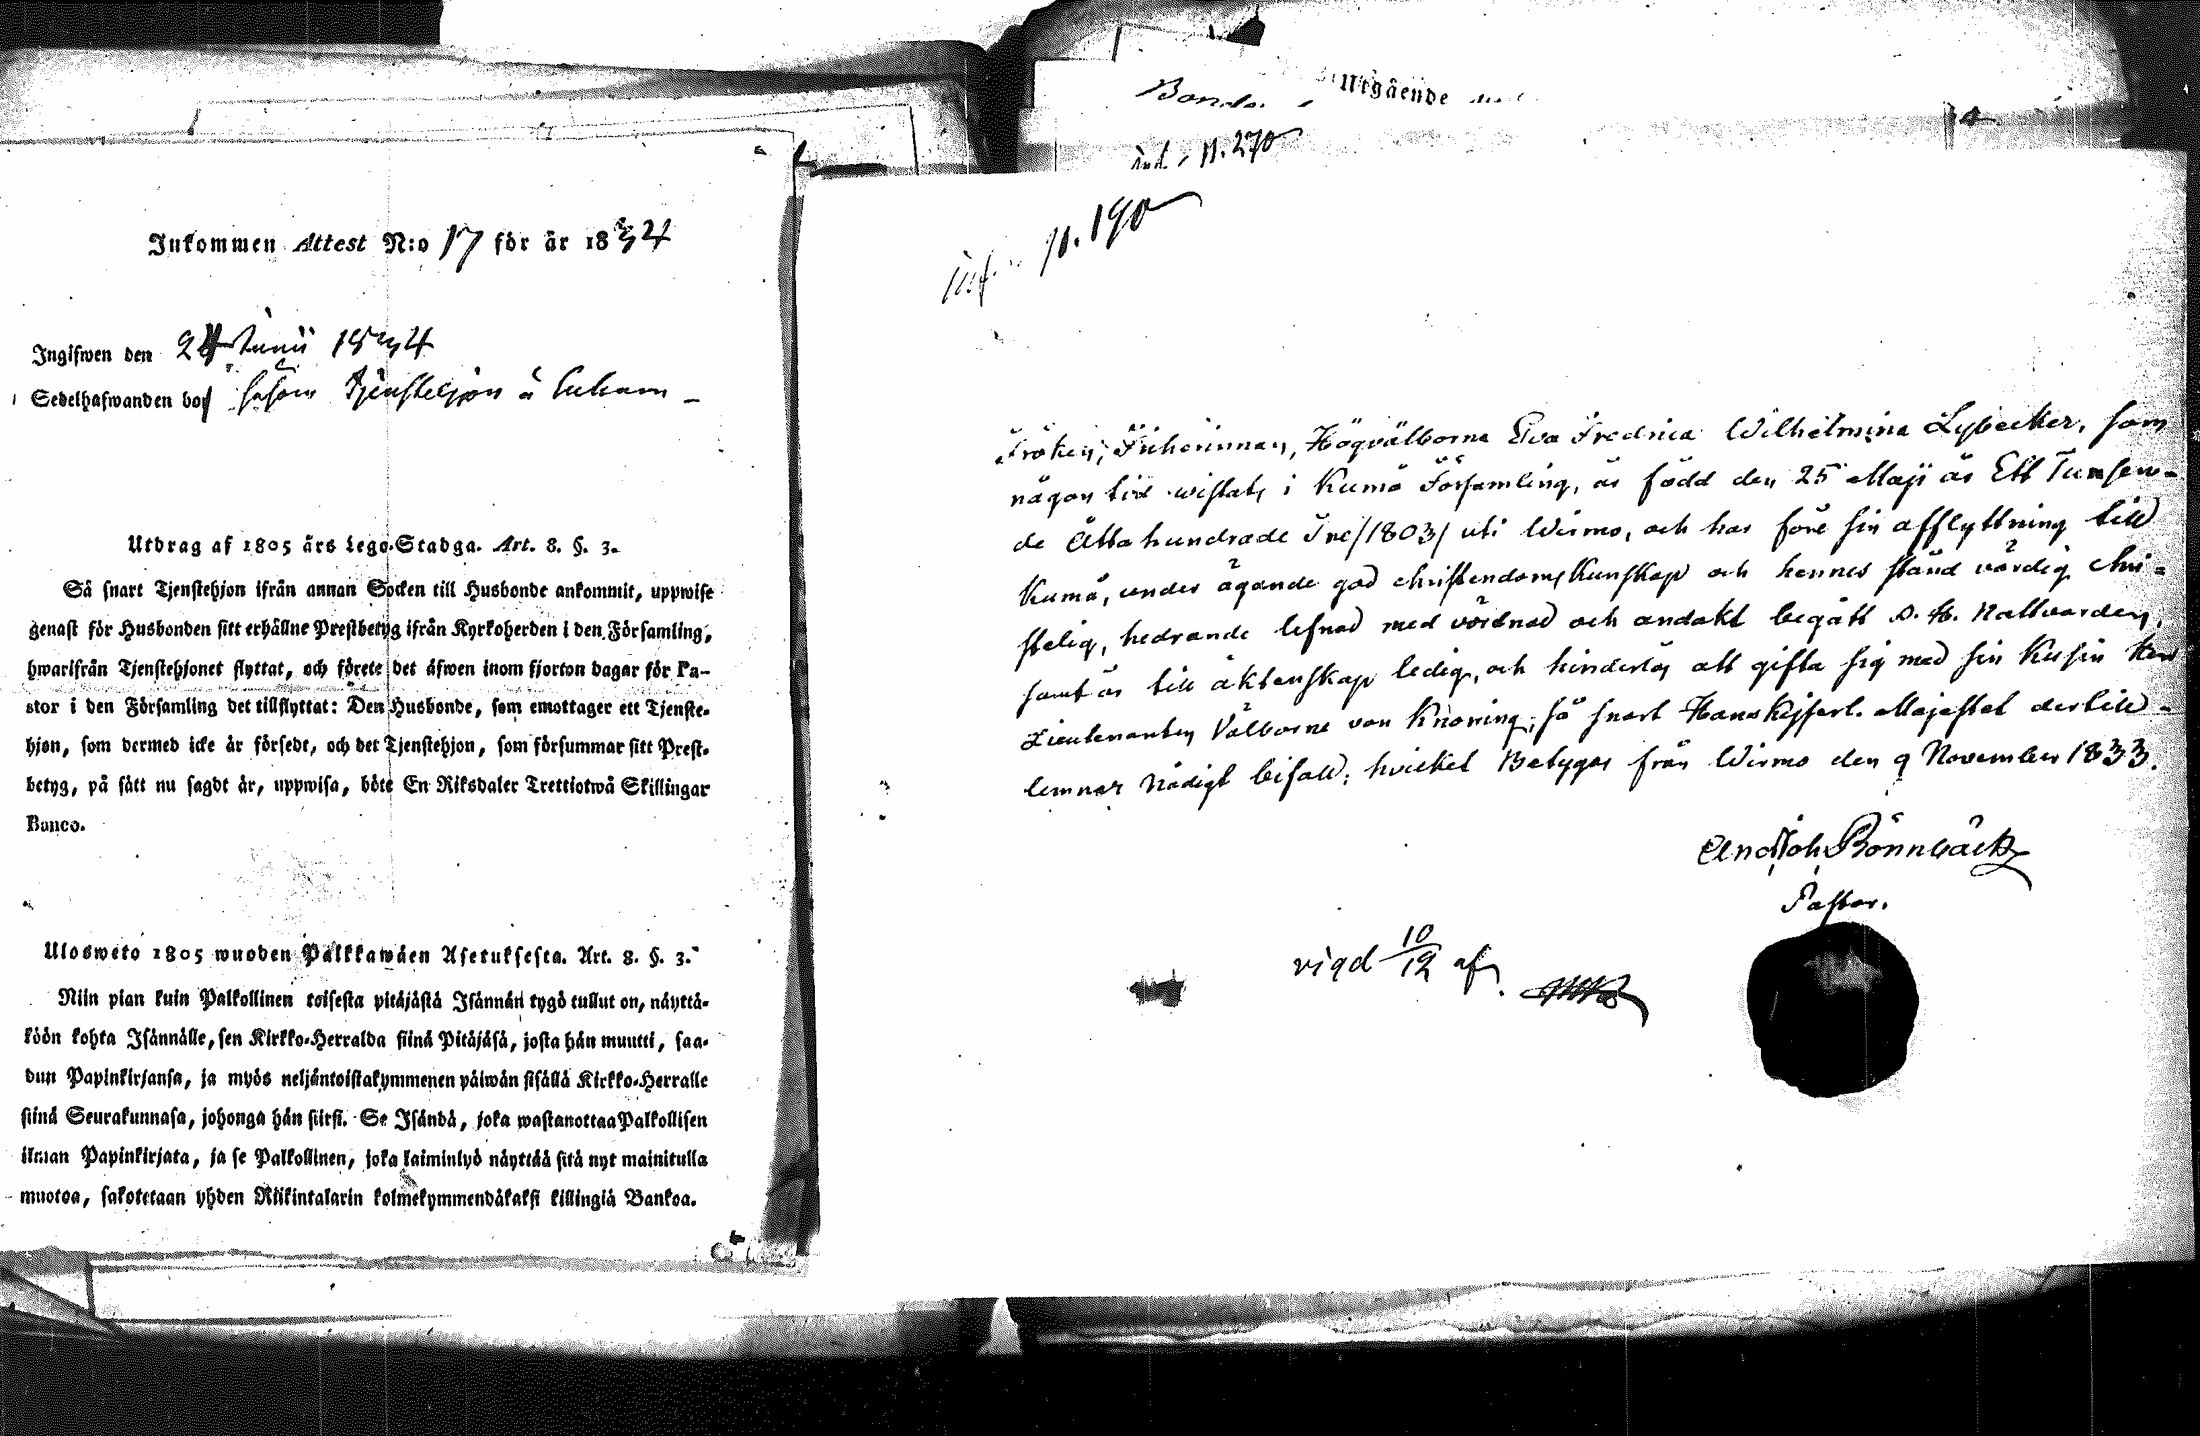 Inkommen Attest N:o 17 för år 1834
Ingifwen den 24 Junii 1834
Sedelhafwanden bor såsom Tjenstehjon å
Utdrag af 1805 års Lego-Stadga. Art. 8. §. 3.
Så snart Tjenstehjon ifrån annan Socken till Husbonde ankommit, uppwise
genast för Husbonden sitt erhållne Prestbetyg ifrån Kyrkoherden i den Församling,
hwarifrån Tjenstehjonet flyttat, och förete det äfwen inom fjorton dagar för Pa-
stor i den Församling det tillflyttat: Den Husbonde, som emottager ett Tjenste-
hjon, som dermed icke är försedt, och det Tjenstehjon, som försummar sitt Prest-
betyg, på sätt nu sagdt är, uppwisa, böte En Riksdaler Trettiotwå Skillingar
Banco.
Ulosweto 1805 wuoden Palkkawäen Asetuksesta. Art. 8. §. 3.
Niin pian kuin Palkollinen toisesta pitäjästä Isännän tygö tullut on, näyttä-
köön kohta Isännälle, sen Kirkko-Herralda siinä Pitäjäsä, josta hän muutti, saa-
dun Papinkirjansa, ja myös neljäntoistakymmenen päiwän sisällä Kirkko-Herralle
siinä Seurakunnasa, johonga hän siirsi. Se Isändä, joka wastanottaa Palkollisen
ilman Papinkirjata, ja se Palkollinen, joka laiminlyö näyttää sitä nyt mainitulla
muotoa, sakotetaan yhden Riikintalarin kolmekymmendäkaksi killingiä Bankoa.
Utgående
p. 270
inf. p. 190
Fröken, Friherinnan, Högvälborna Eva Fredrica Wilhelmina Lybecker, som
någon tid wistats i Kumo Församling, är född den 25 Maji år Ett Tusen-
de Åtta hundrade Tre /1803/ uti Wirmo, och har före sin afflyttning till
Kumo, under ägande god christendoms kunskap och hennes stånd värdig chri-
stelig, hedrande lefnad med vördnad och andakt begått d. H. Nattvarden,
samt är till äktenskap ledig, och hinderlös att gifta sig med sin Kusin Herr
Lieutenanten Välborne von Knorring, så snart Hans Kejserl. Majestet dertill
lemnar Nådigt bifall; hvilket Betygas från Wirmo den 9 November 1833.
And Joh Rönnbäck
Pastor.
vigd 10/12 af